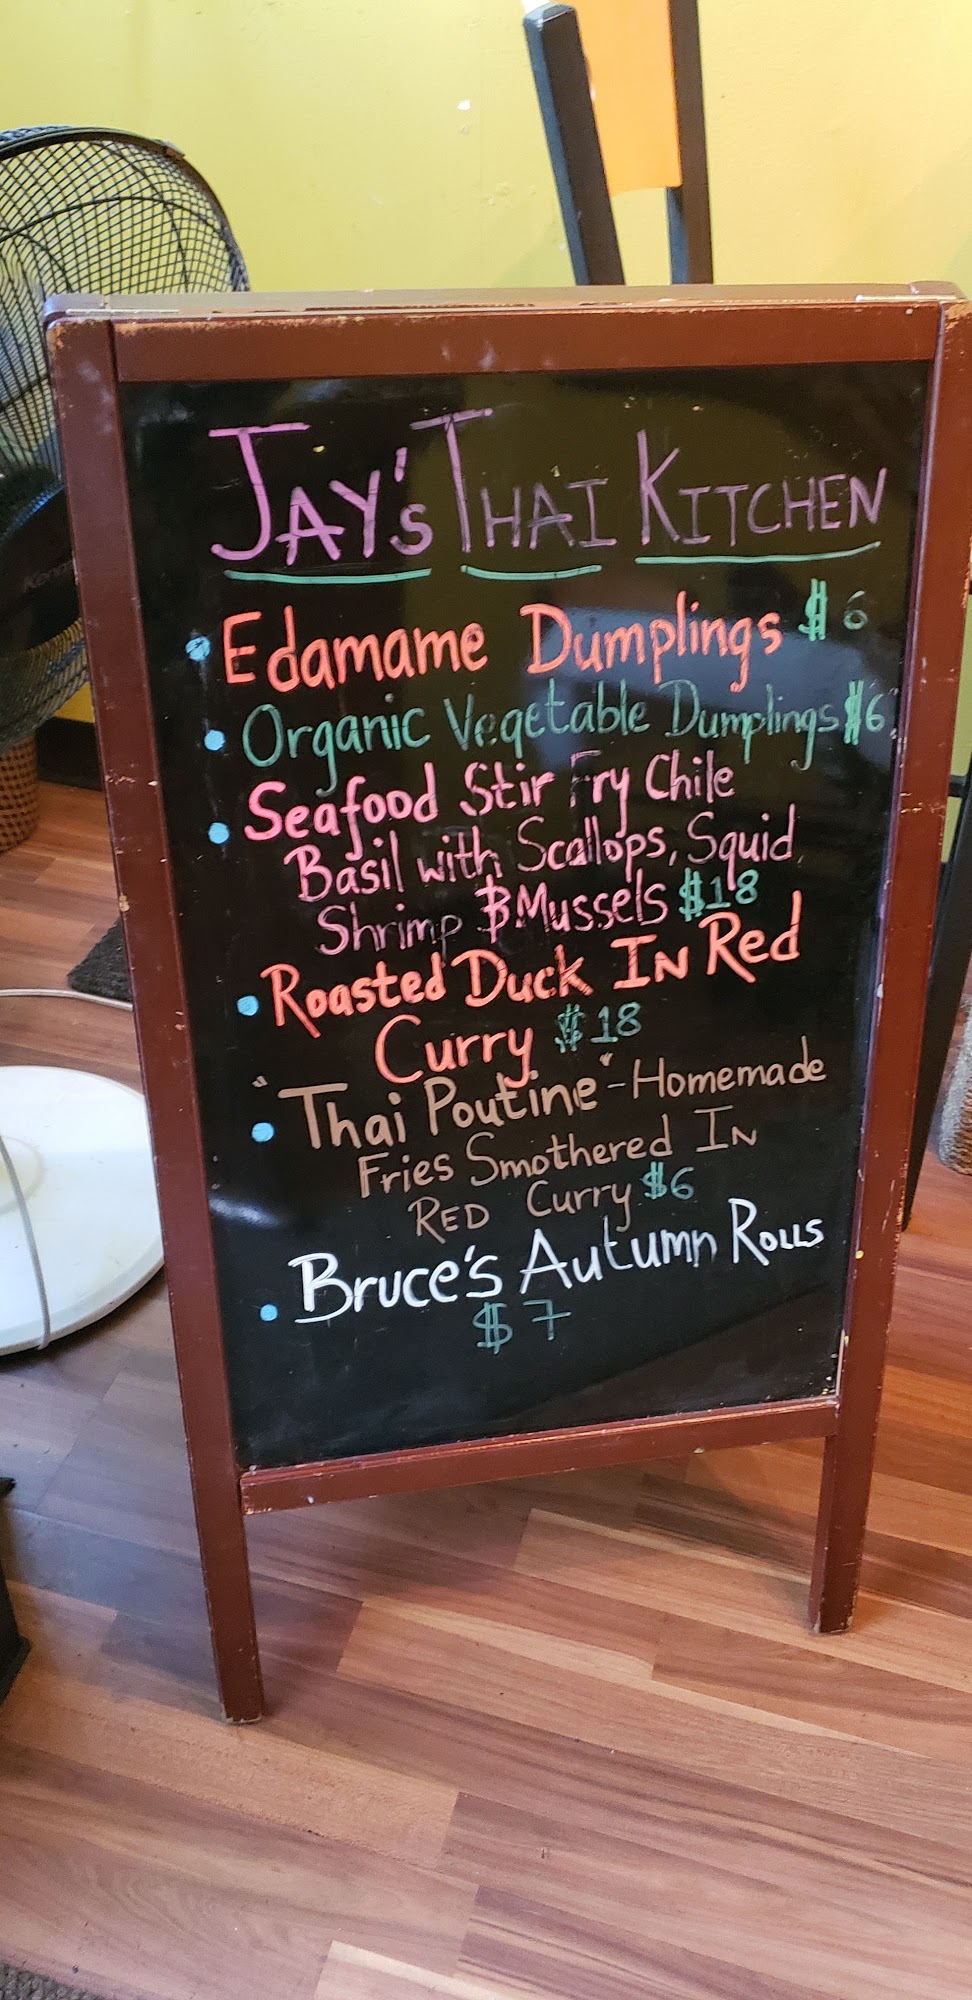 JAY'S THAI KITCHEN
Edamame Dumplings $6
Organic Vegetable Dumplings $6
Seafood Stir Fry Chile
Basil with Scallops, Squid
Shrimp & Mussels $18
Roasted Duck In Red
Curry $18
"Thai Poutine" - Homemade
Fries Smothered In
RED Curry $6
Bruce's Autumn Rolls
$7